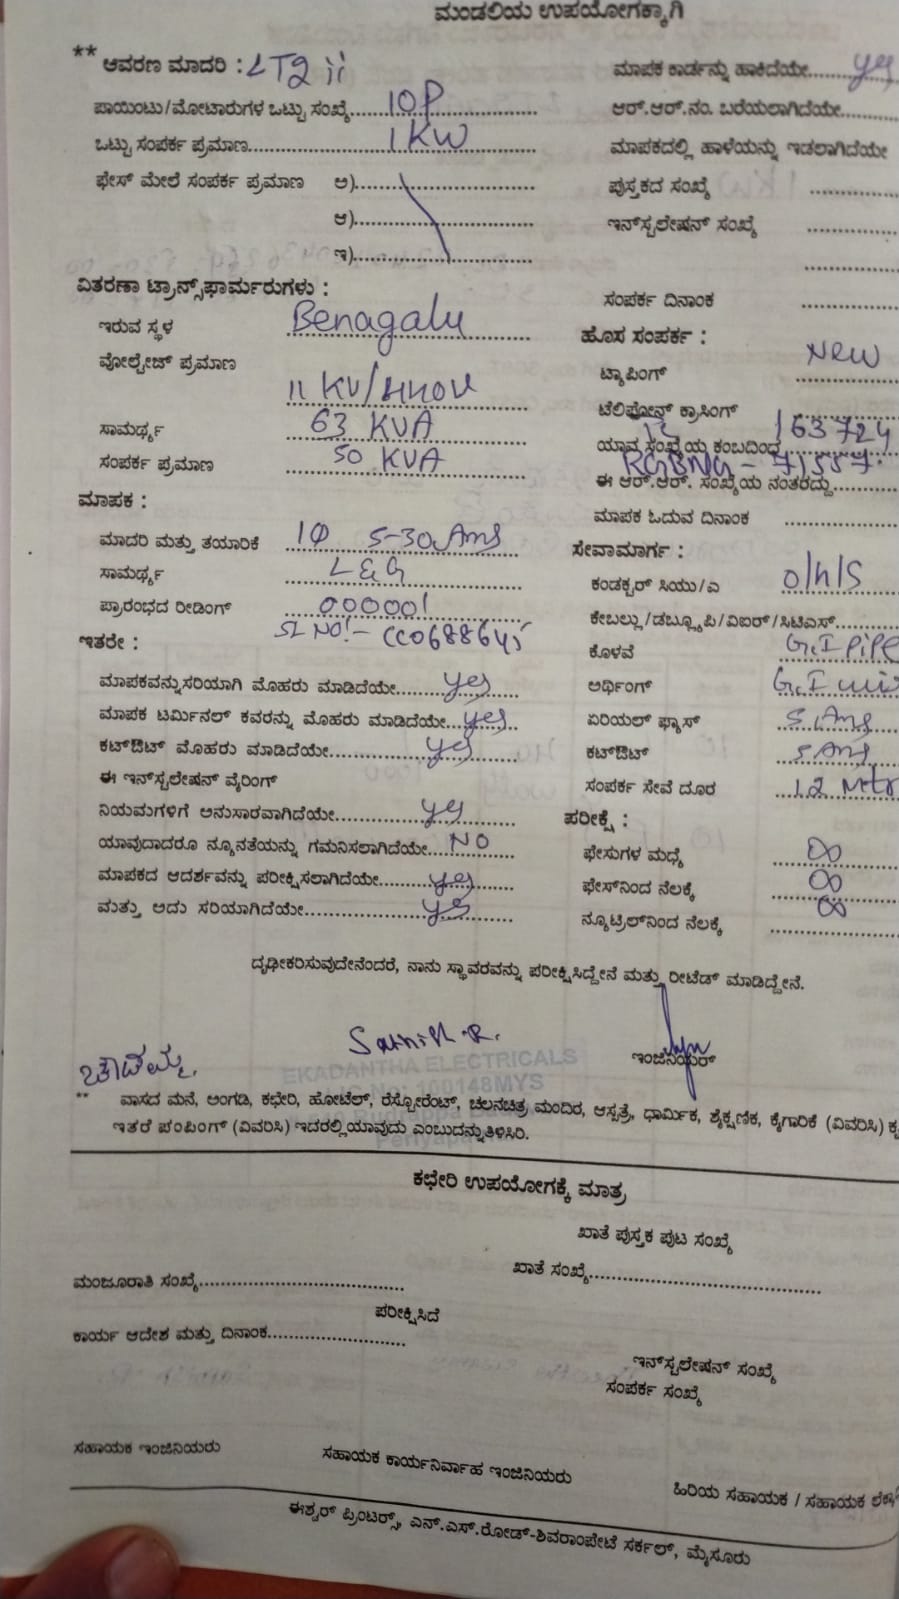 ಮಂಡಲಿಯ ಉಪಯೋಗಕ್ಕಾಗಿ
** ಆವರಣ ಮಾದರಿ : LT2 ii
ಪಾಯಿಂಟು/ಮೋಟಾರುಗಳ ಒಟ್ಟು ಸಂಖ್ಯೆ 10P
ಒಟ್ಟು ಸಂಪರ್ಕ ಪ್ರಮಾಣ 1 KW
ಫೇಸ್ ಮೇಲೆ ಸಂಪರ್ಕ ಪ್ರಮಾಣ ಅ)
ಆ)
ಇ)
ವಿತರಣಾ ಟ್ರಾನ್ಸ್‌ಫಾರ್ಮರುಗಳು :
ಇರುವ ಸ್ಥಳ Benagalu
ವೋಲ್ಟೇಜ್ ಪ್ರಮಾಣ
11 KV/
ಸಾಮರ್ಥ್ಯ 63 KVA
ಸಂಪರ್ಕ ಪ್ರಮಾಣ 50 KVA
ಮಾಪಕ :
ಮಾದರಿ ಮತ್ತು ತಯಾರಿಕೆ 1Φ 5-30 Ams
ಸಾಮರ್ಥ್ಯ L&G
ಪ್ರಾರಂಭದ ರೀಡಿಂಗ್ 000001
SL NO:- CC0688645
ಇತರೇ :
ಮಾಪಕವನ್ನು ಸರಿಯಾಗಿ ಮೊಹರು ಮಾಡಿದೆಯೇ yes
ಮಾಪಕ ಟರ್ಮಿನಲ್ ಕವರನ್ನು ಮೊಹರು ಮಾಡಿದೆಯೇ yes
ಕಟ್‌ಔಟ್ ಮೊಹರು ಮಾಡಿದೆಯೇ yes
ಈ ಇನ್‌ಸ್ಟಲೇಷನ್ ವೈರಿಂಗ್
ನಿಯಮಗಳಿಗೆ ಅನುಸಾರವಾಗಿದೆಯೇ yes
ಯಾವುದಾದರೂ ನ್ಯೂನತೆಯನ್ನು ಗಮನಿಸಲಾಗಿದೆಯೇ NO
ಮಾಪಕದ ಆದರ್ಶವನ್ನು ಪರೀಕ್ಷಿಸಲಾಗಿದೆಯೇ yes
ಮತ್ತು ಅದು ಸರಿಯಾಗಿದೆಯೇ yes
ಮಾಪಕ ಕಾರ್ಡನ್ನು ಹಾಕಿದೆಯೇ yes
ಆರ್.ಆರ್.ನಂ. ಬರೆಯಲಾಗಿದೆಯೇ
ಮಾಪಕದಲ್ಲಿ ಹಾಳೆಯನ್ನು ಇಡಲಾಗಿದೆಯೇ
ಪುಸ್ತಕದ ಸಂಖ್ಯೆ
ಇನ್‌ಸ್ಟಲೇಷನ್ ಸಂಖ್ಯೆ
ಸಂಪರ್ಕ ದಿನಾಂಕ
ಹೊಸ ಸಂಪರ್ಕ :
ಟ್ಯಾಪಿಂಗ್ New
ಟೆಲಿಫೋನ್ ಕ್ರಾಸಿಂಗ್
ಯಾವ ಸಂಖ್ಯೆಯ ಕಂಬದಿಂದ 163724
ಈ ಆರ್.ಆರ್. ಸಂಖ್ಯೆಯ ನಂತರದ್ದು
ಮಾಪಕ ಓದುವ ದಿನಾಂಕ
ಸೇವಾಮಾರ್ಗ :
ಕಂಡಕ್ಟರ್ ಸಿಯು/ಎ O/H/S
ಕೇಬಲ್ಲು/ಡಬ್ಲ್ಯೂಪಿ/ವಿಐರ್/ಸಿಟಿಎಸ್
ಕೊಳವೆ G.I PIPE
ಅರ್ಥಿಂಗ್ G.I
ಏರಿಯಲ್ ಫ್ಯೂಸ್ 5 Ams
ಕಟ್‌ಔಟ್ 5 Ams
ಸಂಪರ್ಕ ಸೇವೆ ದೂರ 12 Mtr
ಪರೀಕ್ಷೆ :
ಫೇಸುಗಳ ಮಧ್ಯೆ ∞
ಫೇಸ್‌ನಿಂದ ನೆಲಕ್ಕೆ ∞
ನ್ಯೂಟ್ರಲ್‌ನಿಂದ ನೆಲಕ್ಕೆ ∞
ದೃಢೀಕರಿಸುವುದೇನೆಂದರೆ, ನಾನು ಸ್ಥಾವರವನ್ನು ಪರೀಕ್ಷಿಸಿದ್ದೇನೆ ಮತ್ತು ರೀಟೆಡ್ ಮಾಡಿದ್ದೇನೆ.
ಚೌಡಮ್ಮ
ಇಂಜಿನಿಯರ್
EKADANTHA ELECTRICALS
No: 100148MYS
** ವಾಸದ ಮನೆ, ಅಂಗಡಿ, ಕಛೇರಿ, ಹೋಟೆಲ್, ರೆಸ್ಟೋರೆಂಟ್, ಚಲನಚಿತ್ರ ಮಂದಿರ, ಆಸ್ಪತ್ರೆ, ಧಾರ್ಮಿಕ, ಶೈಕ್ಷಣಿಕ, ಕೈಗಾರಿಕೆ (ವಿವರಿಸಿ)
ಇತರೆ ಪಂಪಿಂಗ್ (ವಿವರಿಸಿ) ಇದರಲ್ಲಿ ಯಾವುದು ಎಂಬುದನ್ನು ತಿಳಿಸಿರಿ.
ಕಛೇರಿ ಉಪಯೋಗಕ್ಕೆ ಮಾತ್ರ
ಖಾತೆ ಪುಸ್ತಕ ಪುಟ ಸಂಖ್ಯೆ
ಮಂಜೂರಾತಿ ಸಂಖ್ಯೆ ಖಾತೆ ಸಂಖ್ಯೆ
ಪರೀಕ್ಷಿಸಿದೆ
ಕಾರ್ಯ ಆದೇಶ ಮತ್ತು ದಿನಾಂಕ
ಇನ್‌ಸ್ಟಲೇಷನ್ ಸಂಖ್ಯೆ
ಸಂಪರ್ಕ ಸಂಖ್ಯೆ
ಸಹಾಯಕ ಇಂಜಿನಿಯರು ಸಹಾಯಕ ಕಾರ್ಯನಿರ್ವಾಹ ಇಂಜಿನಿಯರು ಹಿರಿಯ ಸಹಾಯಕ / ಸಹಾಯಕ
ಈಶ್ವರ್ ಪ್ರಿಂಟರ್ಸ್, ಎನ್.ಎಸ್.ರೋಡ್-ಶಿವರಾಂಪೇಟೆ ಸರ್ಕಲ್, ಮೈಸೂರು